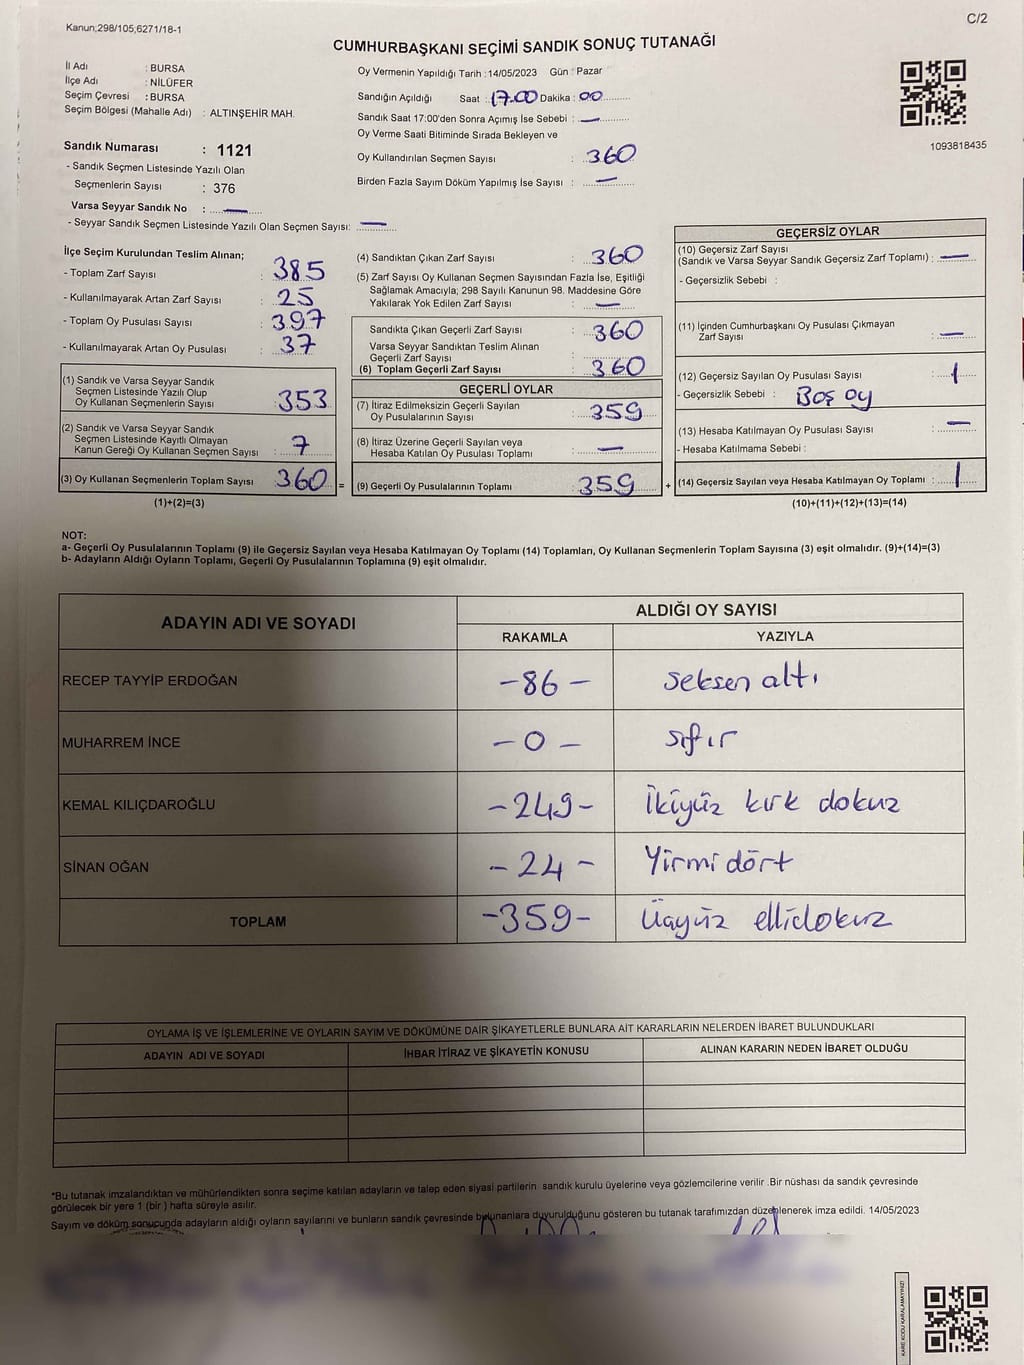 Kanun;298/105;6271/18-1
C/2
CUMHURBAŞKANI SEÇİMİ SANDIK SONUÇ TUTANAĞI
İl Adı : BURSA
İlçe Adı : NİLÜFER
Seçim Çevresi : BURSA
Seçim Bölgesi (Mahalle Adı) : ALTINŞEHİR MAH.
Sandık Numarası : 1121
- Sandık Seçmen Listesinde Yazılı Olan
Seçmenlerin Sayısı : 376
Varsa Seyyar Sandık No : —
- Seyyar Sandık Seçmen Listesinde Yazılı Olan Seçmen Sayısı: —
Oy Vermenin Yapıldığı Tarih : 14/05/2023 Gün : Pazar
Sandığın Açıldığı Saat : 17.00 Dakika : 00
Sandık Saat 17:00'den Sonra Açımış İse Sebebi : —
Oy Verme Saati Bitiminde Sırada Bekleyen ve
Oy Kullandırılan Seçmen Sayısı : 360
Birden Fazla Sayım Döküm Yapılmış İse Sayısı : —
1093818435
İlçe Seçim Kurulundan Teslim Alınan;
- Toplam Zarf Sayısı : 385
- Kullanılmayarak Artan Zarf Sayısı : 25
- Toplam Oy Pusulası Sayısı : 397
- Kullanılmayarak Artan Oy Pusulası : 37
(1) Sandık ve Varsa Seyyar Sandık
Seçmen Listesinde Yazılı Olup
Oy Kullanan Seçmenlerin Sayısı : 353
(2) Sandık ve Varsa Seyyar Sandık
Seçmen Listesinde Kayıtlı Olmayan
Kanun Gereği Oy Kullanan Seçmen Sayısı : 7
(3) Oy Kullanan Seçmenlerin Toplam Sayısı : 360 =
(1)+(2)=(3)
(4) Sandıktan Çıkan Zarf Sayısı : 360
(5) Zarf Sayısı Oy Kullanan Seçmen Sayısından Fazla İse, Eşitliği
Sağlamak Amacıyla; 298 Sayılı Kanunun 98. Maddesine Göre
Yakılarak Yok Edilen Zarf Sayısı : —
Sandıkta Çıkan Geçerli Zarf Sayısı : 360
Varsa Seyyar Sandıktan Teslim Alınan
Geçerli Zarf Sayısı :
(6) Toplam Geçerli Zarf Sayısı : 360
GEÇERLİ OYLAR
(7) İtiraz Edilmeksizin Geçerli Sayılan
Oy Pusulalarının Sayısı : 359
(8) İtiraz Üzerine Geçerli Sayılan veya
Hesaba Katılan Oy Pusulası Toplamı : —
(9) Geçerli Oy Pusulalarının Toplamı : 359 +
GEÇERSİZ OYLAR
(10) Geçersiz Zarf Sayısı
(Sandık ve Varsa Seyyar Sandık Geçersiz Zarf Toplamı) : —
- Geçersizlik Sebebi :
(11) İçinden Cumhurbaşkanı Oy Pusulası Çıkmayan
Zarf Sayısı : —
(12) Geçersiz Sayılan Oy Pusulası Sayısı : 1
- Geçersizlik Sebebi : Boş oy
(13) Hesaba Katılmayan Oy Pusulası Sayısı : —
- Hesaba Katılmama Sebebi :
(14) Geçersiz Sayılan veya Hesaba Katılmayan Oy Toplamı : 1
(10)+(11)+(12)+(13)=(14)
NOT:
a- Geçerli Oy Pusulalarının Toplamı (9) ile Geçersiz Sayılan veya Hesaba Katılmayan Oy Toplamı (14) Toplamları, Oy Kullanan Seçmenlerin Toplam Sayısına (3) eşit olmalıdır. (9)+(14)=(3)
b- Adayların Aldığı Oyların Toplamı, Geçerli Oy Pusulalarının Toplamına (9) eşit olmalıdır.
ADAYIN ADI VE SOYADI ALDIĞI OY SAYISI
RAKAMLA YAZIYLA
RECEP TAYYİP ERDOĞAN -86- seksen altı
MUHARREM İNCE -0- sıfır
KEMAL KILIÇDAROĞLU -249- İkiyüz kırk dokuz
SİNAN OĞAN -24- Yirmi dört
TOPLAM -359- Üçyüz ellidokuz
OYLAMA İŞ VE İŞLEMLERİNE VE OYLARIN SAYIM VE DÖKÜMÜNE DAİR ŞİKAYETLERLE BUNLARA AİT KARARLARIN NELERDEN İBARET BULUNDUKLARI
ADAYIN ADI VE SOYADI İHBAR İTİRAZ VE ŞİKAYETİN KONUSU ALINAN KARARIN NEDEN İBARET OLDUĞU
*Bu tutanak imzalandıktan ve mühürlendikten sonra seçime katılan adayların ve talep eden siyasi partilerin sandık kurulu üyelerine veya gözlemcilerine verilir .Bir nüshası da sandık çevresinde
görülecek bir yere 1 (bir ) hafta süreyle asılır.
Sayım ve döküm sonucunda adayların aldığı oyların sayılarını ve bunların sandık çevresinde bulunanlara duyurulduğunu gösteren bu tutanak tarafımızdan düzenlenerek imza edildi. 14/05/2023
KARE KODU KARALAMAYINIZ!